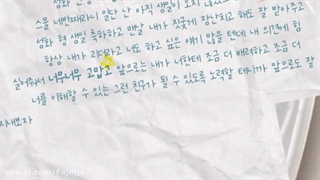 스물 네번째라니 일단 난 아직 생일이 오지 않았지만
성화 형 생일 축하하고 맨날 내가 짓궂게 장난치고 해도 잘 받아주고
항상 내가 리더라고 너도 하고 싶은 얘기 많을 텐데 내 의견에 힘
실어줘서 너무너무 고맙고 앞으로는 내가 너한테 조금 더 배려하고 조금 더
너를 이해할 수 있는 그런 친구가 될 수 있도록 노력할 테니까 앞으로도 잘
지내보자